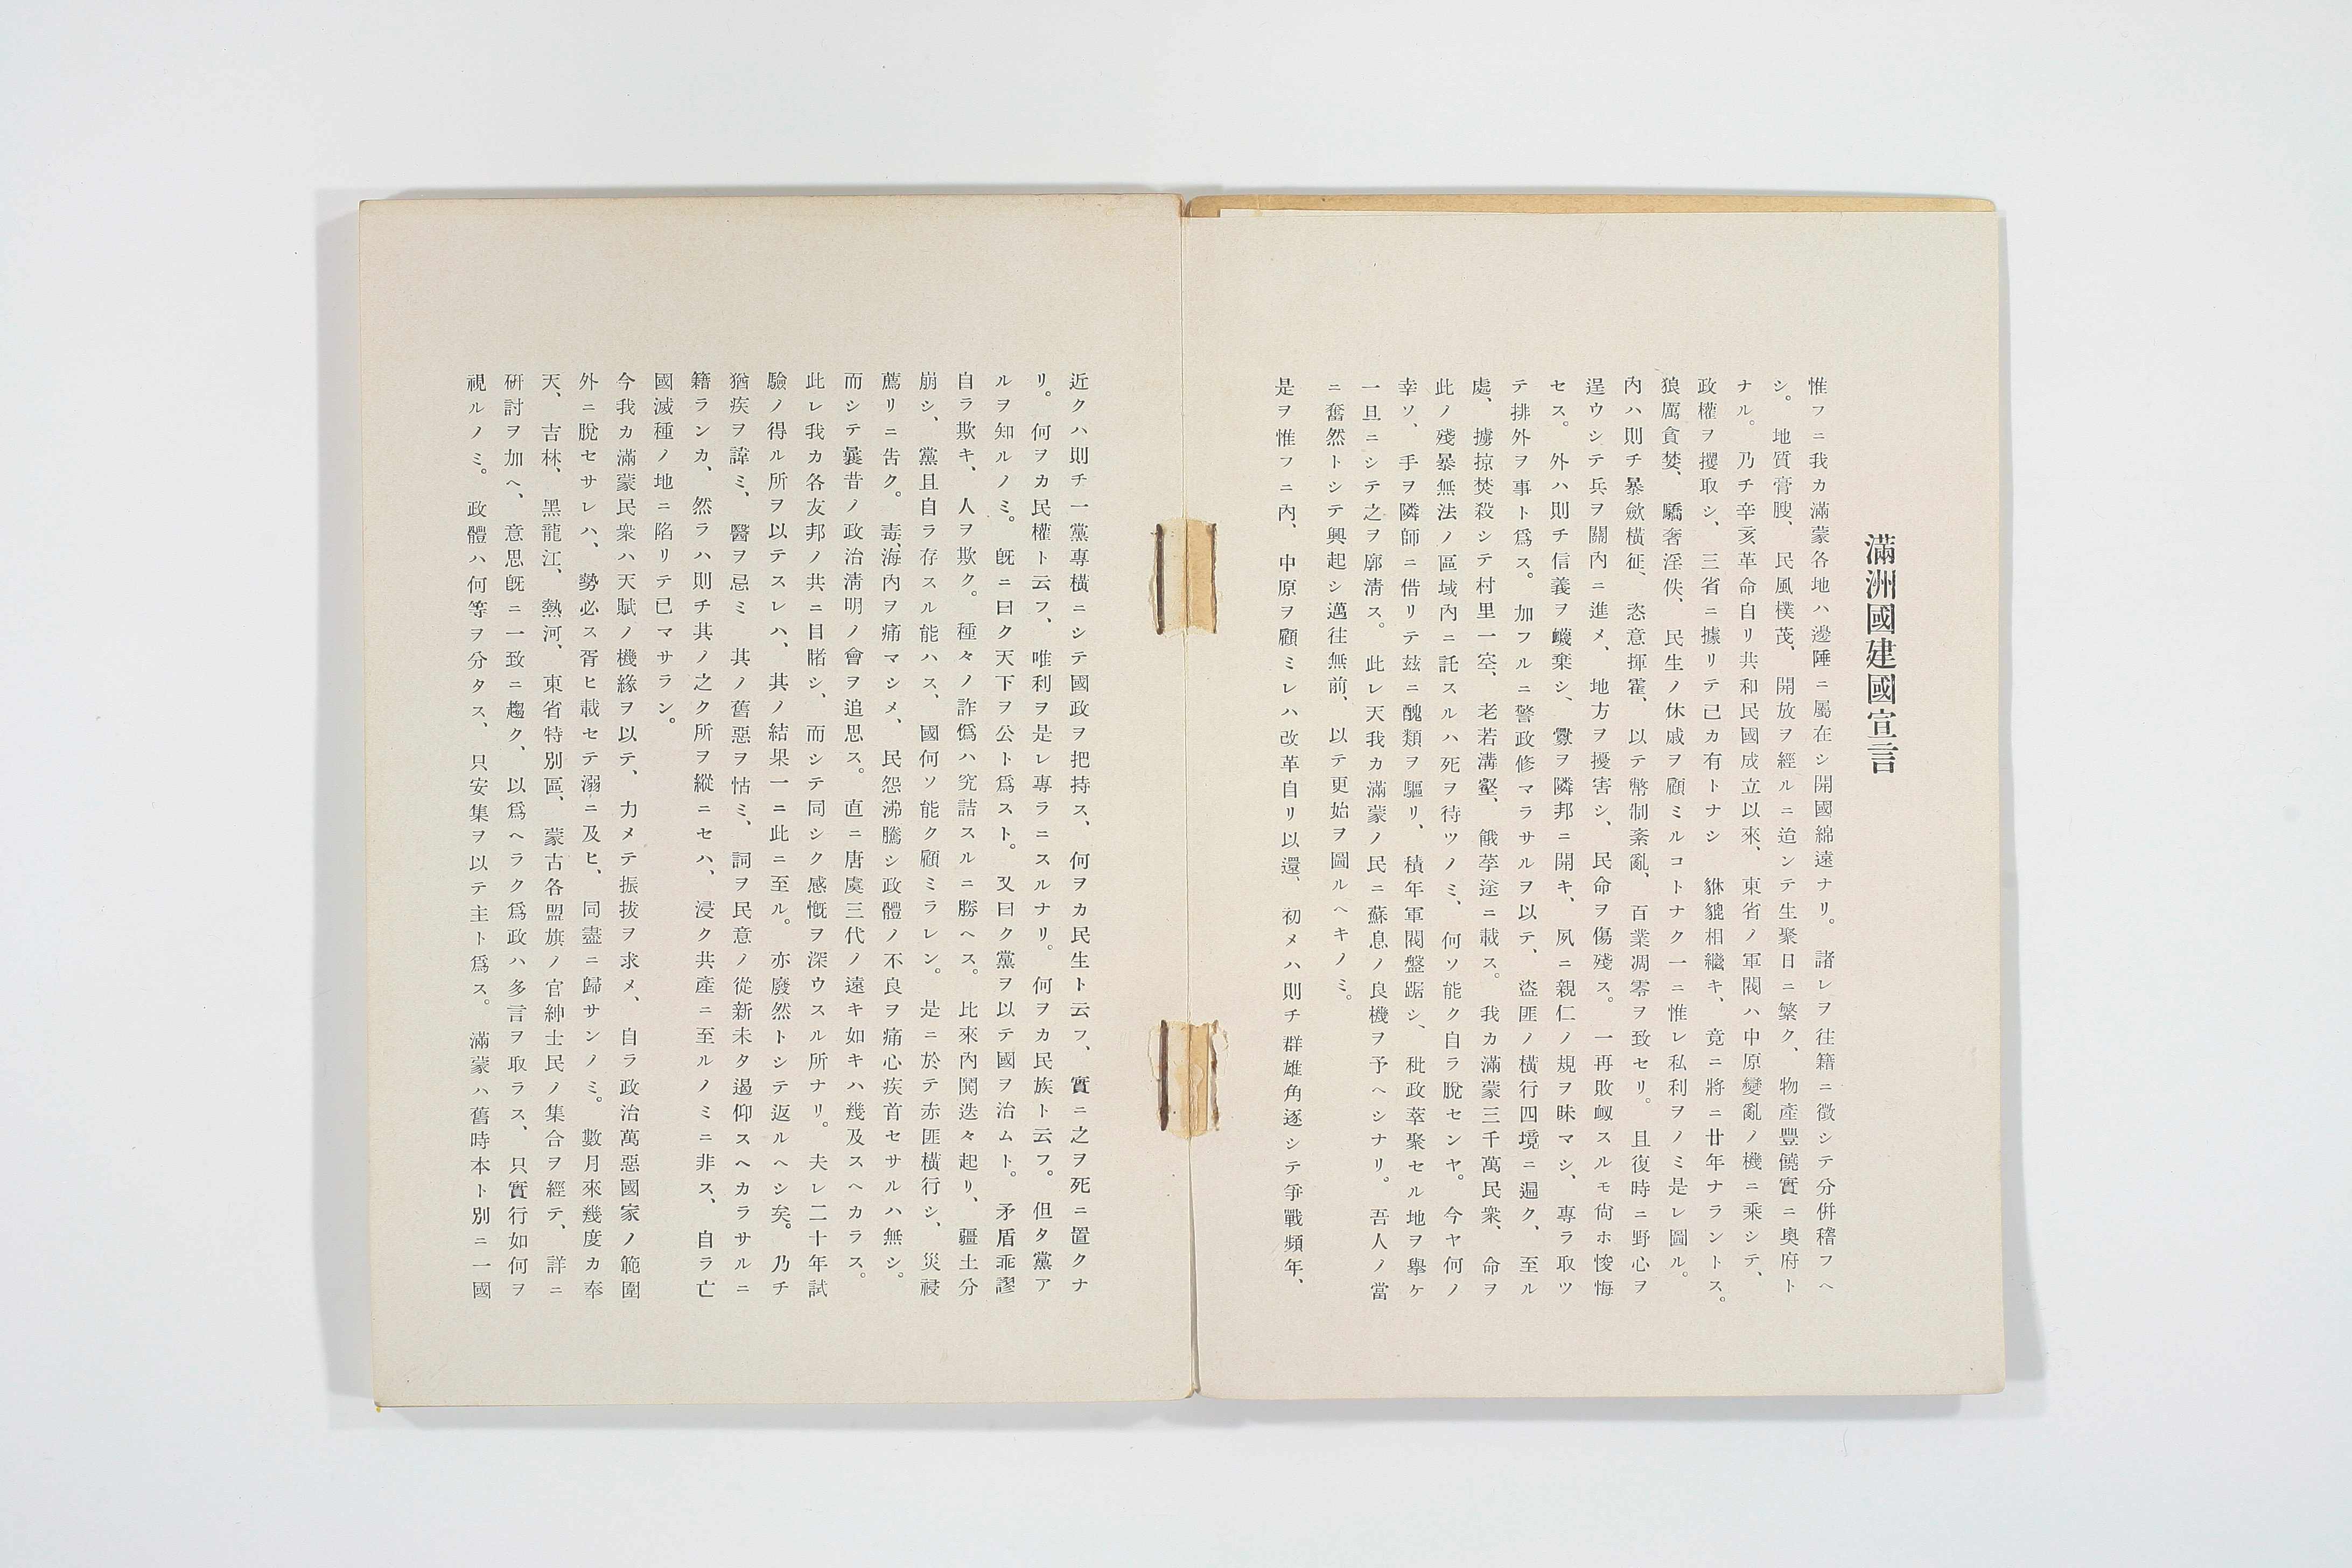 滿洲國建國宣言
惟フニ我カ滿蒙各地ハ邊陲ニ屬在シ開國綿遠ナリ。諸レヲ往籍ニ徵シテ分併稽フヘ
シ。地質膏腴、民風樸茂、開放ヲ經ルニ迨ンテ生聚日ニ繁ク、物產豐饒實ニ奧府ト
ナル。乃チ辛亥革命自リ共和民國成立以來、東省ノ軍閥ハ中原變亂ノ機ニ乘シテ、
政權ヲ攫取シ、三省ニ據リテ己カ有トナシ 貅貔相繼キ、竟ニ將ニ廿年ナラントス。
狼厲貪婪、驕奢淫佚、民生ノ休戚ヲ顧ミルコトナク一ニ惟レ私利ヲノミ是レ圖ル。
內ハ則チ暴斂橫征、恣意揮霍、以テ幣制紊亂、百業凋零ヲ致セリ。且復時ニ野心ヲ
逞ウシテ兵ヲ關內ニ進メ、地方ヲ擾害シ、民命ヲ傷殘ス。一再敗衂スルモ尙ホ悛悔
セス。外ハ則チ信義ヲ蠛棄シ、釁ヲ隣邦ニ開キ、夙ニ親仁ノ規ヲ昧マシ、專ラ取ツ
テ排外ヲ事ト爲ス。加フルニ警政修マラサルヲ以テ、盜匪ノ橫行四境ニ遍ク、至ル
處、擄掠焚殺シテ村里一空、老若溝壑、餓莩途ニ載ス。我カ滿蒙三千萬民衆、命ヲ
此ノ殘暴無法ノ區域內ニ託スルハ死ヲ待ツノミ、何ソ能ク自ラ脫センヤ。今ヤ何ノ
幸ソ、手ヲ隣師ニ借リテ玆ニ醜類ヲ驅リ、積年軍閥盤踞シ、秕政萃聚セル地ヲ擧ケ
一旦ニシテ之ヲ廓淸ス。此レ天我カ滿蒙ノ民ニ蘇息ノ良機ヲ予ヘシナリ。吾人ノ當
ニ奮然トシテ興起シ邁往無前、以テ更始ヲ圖ルヘキノミ。
是ヲ惟フニ內、中原ヲ顧ミレハ改革自リ以還、初メハ則チ群雄角逐シテ爭戰頻年、
近クハ則チ一黨專橫ニシテ國政ヲ把持ス、何ヲカ民生ト云フ、實ニ之ヲ死ニ置クナ
リ。何ヲカ民權ト云フ、唯利ヲ是レ專ラニスルナリ。何ヲカ民族ト云フ。但タ黨ア
ルヲ知ルノミ。旣ニ曰ク天下ヲ公ト爲スト。又曰ク黨ヲ以テ國ヲ治ムト。矛盾乖謬
自ラ欺キ、人ヲ欺ク。種々ノ詐僞ハ究詰スルニ勝ヘス。比來內鬨迭々起リ、疆土分
崩シ、黨且自ラ存スル能ハス、國何ソ能ク顧ミラレン。是ニ於テ赤匪橫行シ、災祲
薦リニ吿ク。毒、海內ヲ痛マシメ、民怨沸騰シ政體ノ不良ヲ痛心疾首セサルハ無シ。
而シテ曩昔ノ政治淸明ノ會ヲ追思ス。直ニ唐虞三代ノ遠キ如キハ幾及スヘカラス。
此レ我カ各友邦ノ共ニ目睹シ、而シテ同シク感慨ヲ深ウスル所ナリ。夫レ二十年試
驗ノ得ル所ヲ以テスレハ、其ノ結果一ニ此ニ至ル。亦廢然トシテ返ルヘシ矣。乃チ
猶疾ヲ諱ミ、醫ヲ忌ミ 其ノ舊惡ヲ怙ミ、詞ヲ民意ノ從新未タ遏仰スヘカラサルニ
籍ランカ、然ラハ則チ其ノ之ク所ヲ縱ニセハ、浸ク共產ニ至ルノミニ非ス、自ラ亡
國滅種ノ地ニ陷リテ已マサラン。
今我カ滿蒙民衆ハ天賦ノ機緣ヲ以テ、力メテ振拔ヲ求メ、自ラ政治萬惡國家ノ範圍
外ニ脫セサレハ、勢必ス胥ヒ載セテ溺ニ及ヒ、同盡ニ歸サンノミ。數月來幾度カ奉
天、吉林、黑龍江、熱河、東省特別區、蒙古各盟旗ノ官紳士民ノ集合ヲ經テ、詳ニ
硏討ヲ加ヘ、意思旣ニ一致ニ趨ク、以爲ヘラク爲政ハ多言ヲ取ラス、只實行如何ヲ
視ルノミ。政體ハ何等ヲ分タス、只安集ヲ以テ主ト爲ス。滿蒙ハ舊時本ト別ニ一國